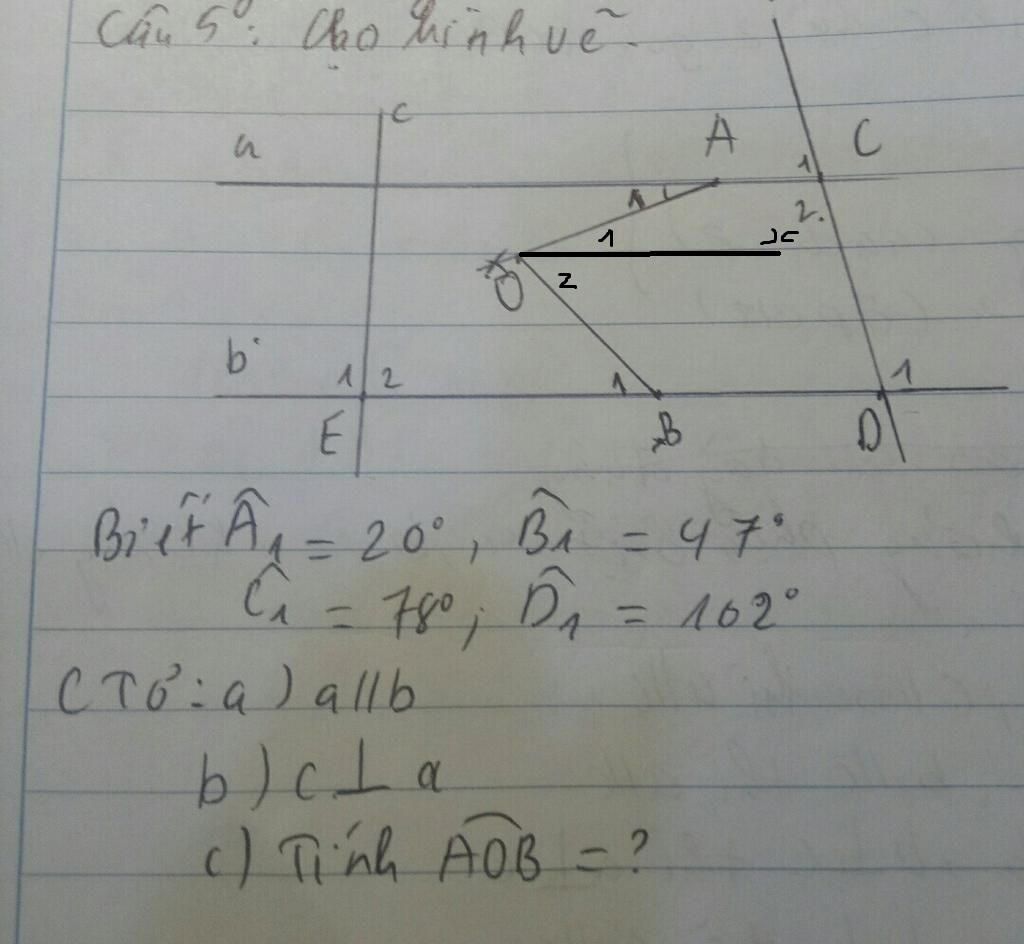 Câu 5: Cho hình vẽ.
c
a
A
C
1
1
2.
1
x
O
2
b
1
2
1
1
E
B
D
Biết Â1 = 20°, B̂1 = 47°
Ĉ1 = 78°; D̂1 = 102°
CTỏ: a) a//b
b) c ⊥ a
c) Tính AÔB = ?